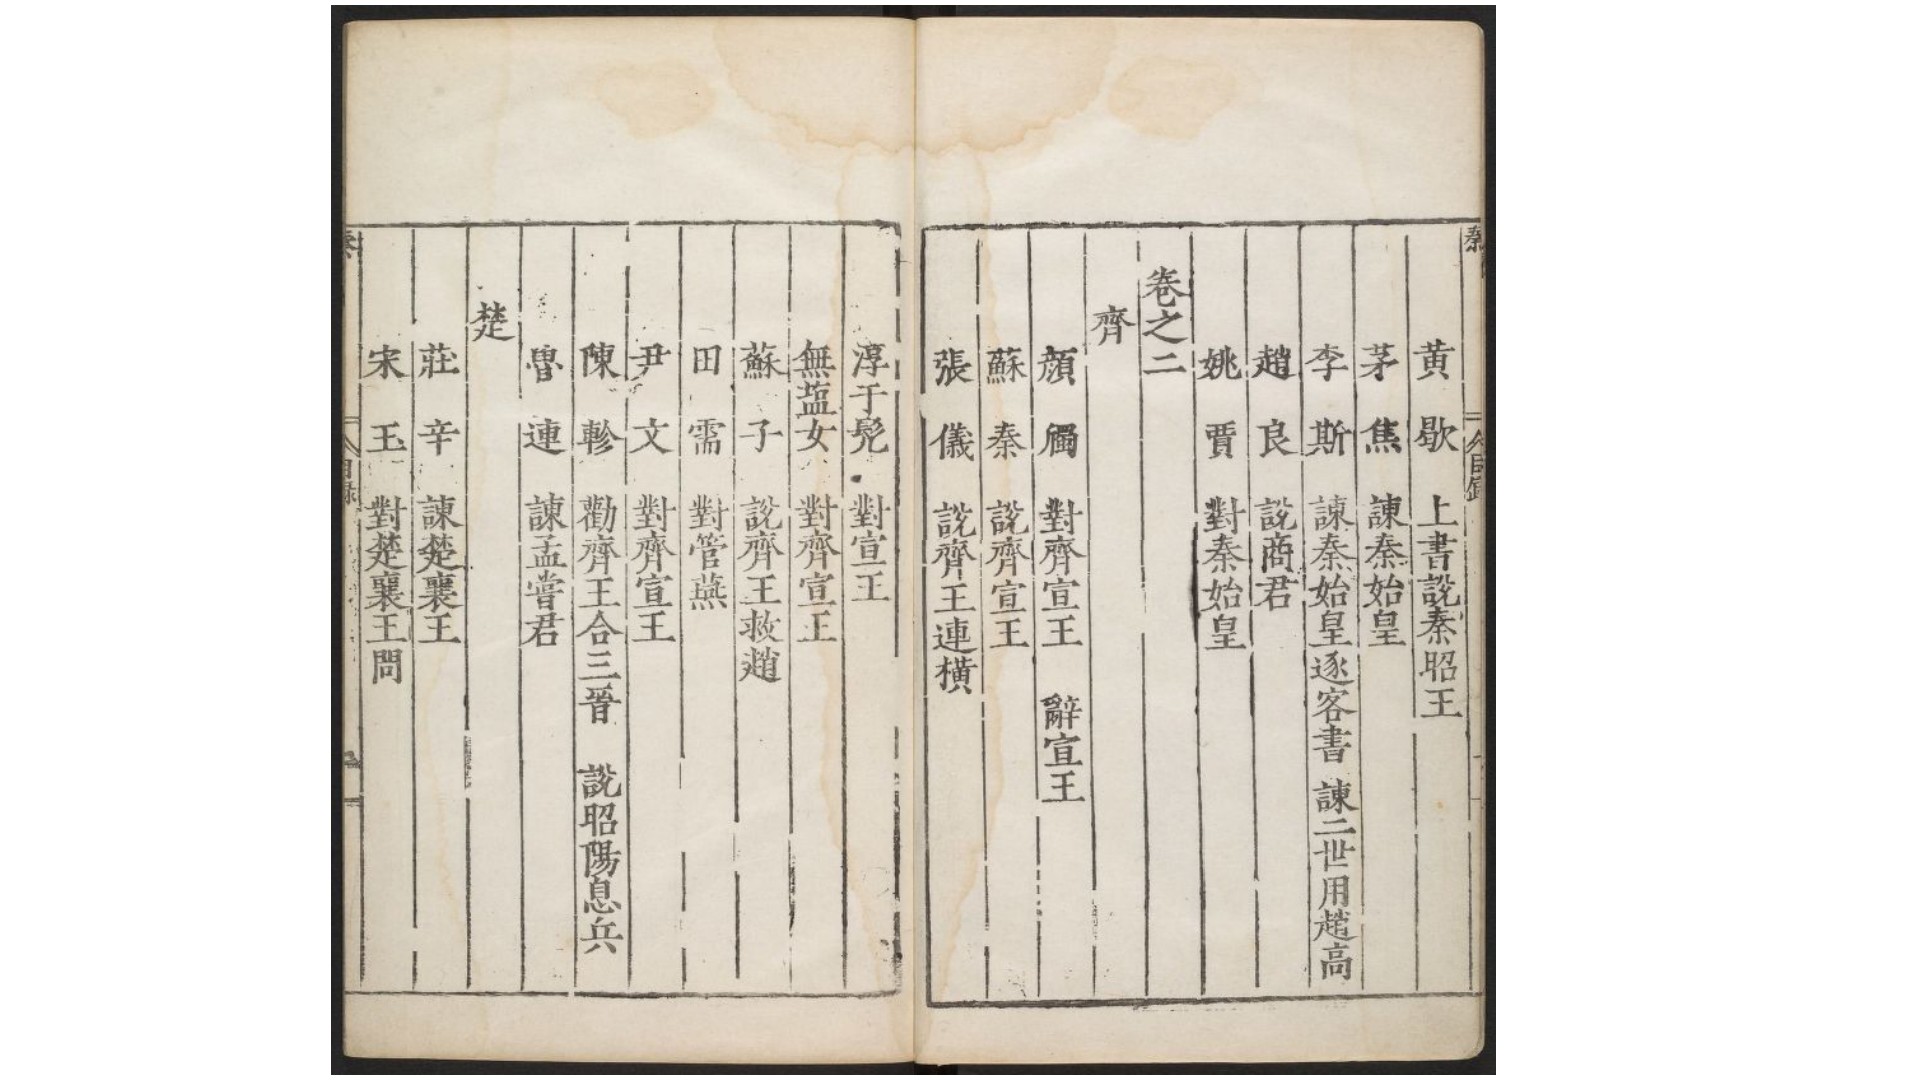 黃歇 上書說秦昭王
茅焦 諫秦始皇
李斯 諫秦始皇逐客書 諫二世用趙高
趙良 說商君
姚賈 對秦始皇
卷之二
齊
顏斶 對齊宣王 辭宣王
蘇秦 說齊宣王
張儀 說齊王連橫
淳于髡 對宣王
無塩女 對齊宣王
蘇子 說齊王救趙
田需 對管燕
尹文 對齊宣王
陳軫 勸齊王合三晉 說昭陽息兵
魯連 諫孟嘗君
楚
莊辛 諫楚襄王
宋玉 對楚襄王問